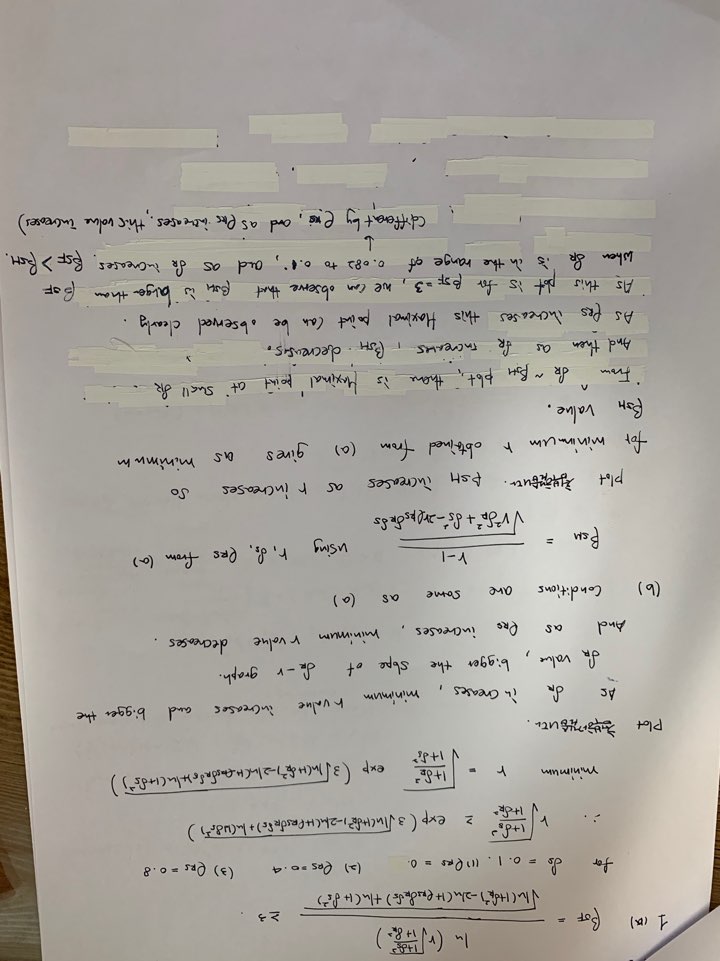 1 (a) β_SF = ln(r√((1+δ_S²)/(1+δ_R²))) / √(ln(1+δ_R²)-2ln(1+ρ_RS δ_R δ_S)+ln(1+δ_S²)) ≥3.
for δ_S = 0.1. (1) ρ_RS = 0. (2) ρ_RS = 0.4 (3) ρ_RS = 0.8
∴ r√((1+δ_S²)/(1+δ_R²)) ≥ exp(3√(ln(1+δ_R²)-2ln(1+ρ_RS δ_R δ_S)+ln(1+δ_S²)))
minimum r = √((1+δ_R²)/(1+δ_S²)) exp(3√(ln(1+δ_R²)-2ln(1+ρ_RS δ_R δ_S)+ln(1+δ_S²)))
Plot
As δ_R increases, minimum r value increases and bigger the
δ_R value, bigger the slope of δ_R-r graph.
And as ρ_RS increases, minimum r value decreases.
(b) Conditions are same as (a)
β_SM = (r-1) / √(r²δ_R² + δ_S² - 2rρ_RS δ_R δ_S) using r, δ_S, ρ_RS from (a)
plot β_SM increases as r increases so
for minimum r obtained from (a) gives us minimum
β_SM value.
From δ_R ~ β_SM plot, there is Maximal point at small δ_R
And then as δ_R increases, β_SM decreases.
As ρ_RS increases this Maximal point can be observed clearly.
As this plot is for β_SF = 3, we can observe that β_SM is bigger than β_SF
When δ_R is in the range of 0.082 to 0.1, and as δ_R increases β_SF > β_SM.
(different by ρ_RS, and as ρ_RS increases, this value increases)